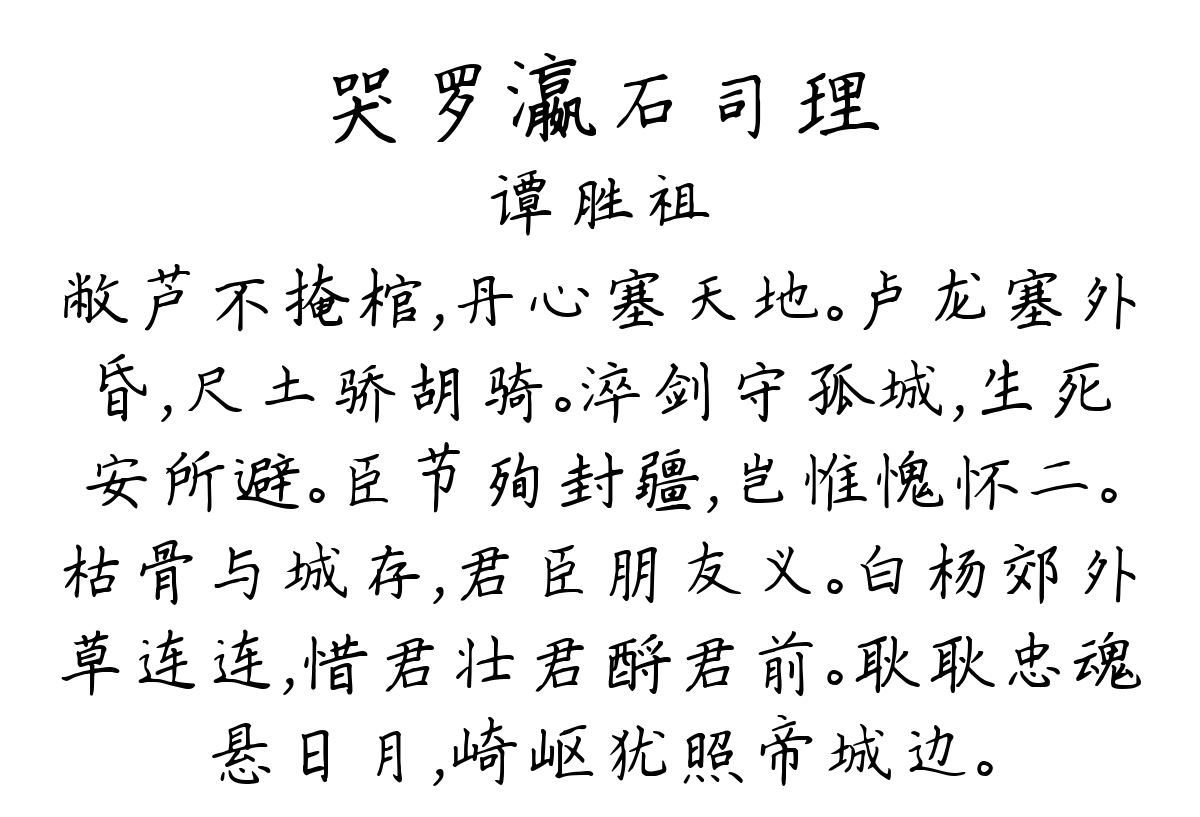 哭罗瀛石司理
谭胜祖
敝芦不掩棺,丹心塞天地。卢龙塞外
昏,尺土骄胡骑。淬剑守孤城,生死
安所避。臣节殉封疆,岂惟愧怀二。
枯骨与城存,君臣朋友义。白杨郊外
草连连,惜君壮君酹君前。耿耿忠魂
悬日月,崎岖犹照帝城边。